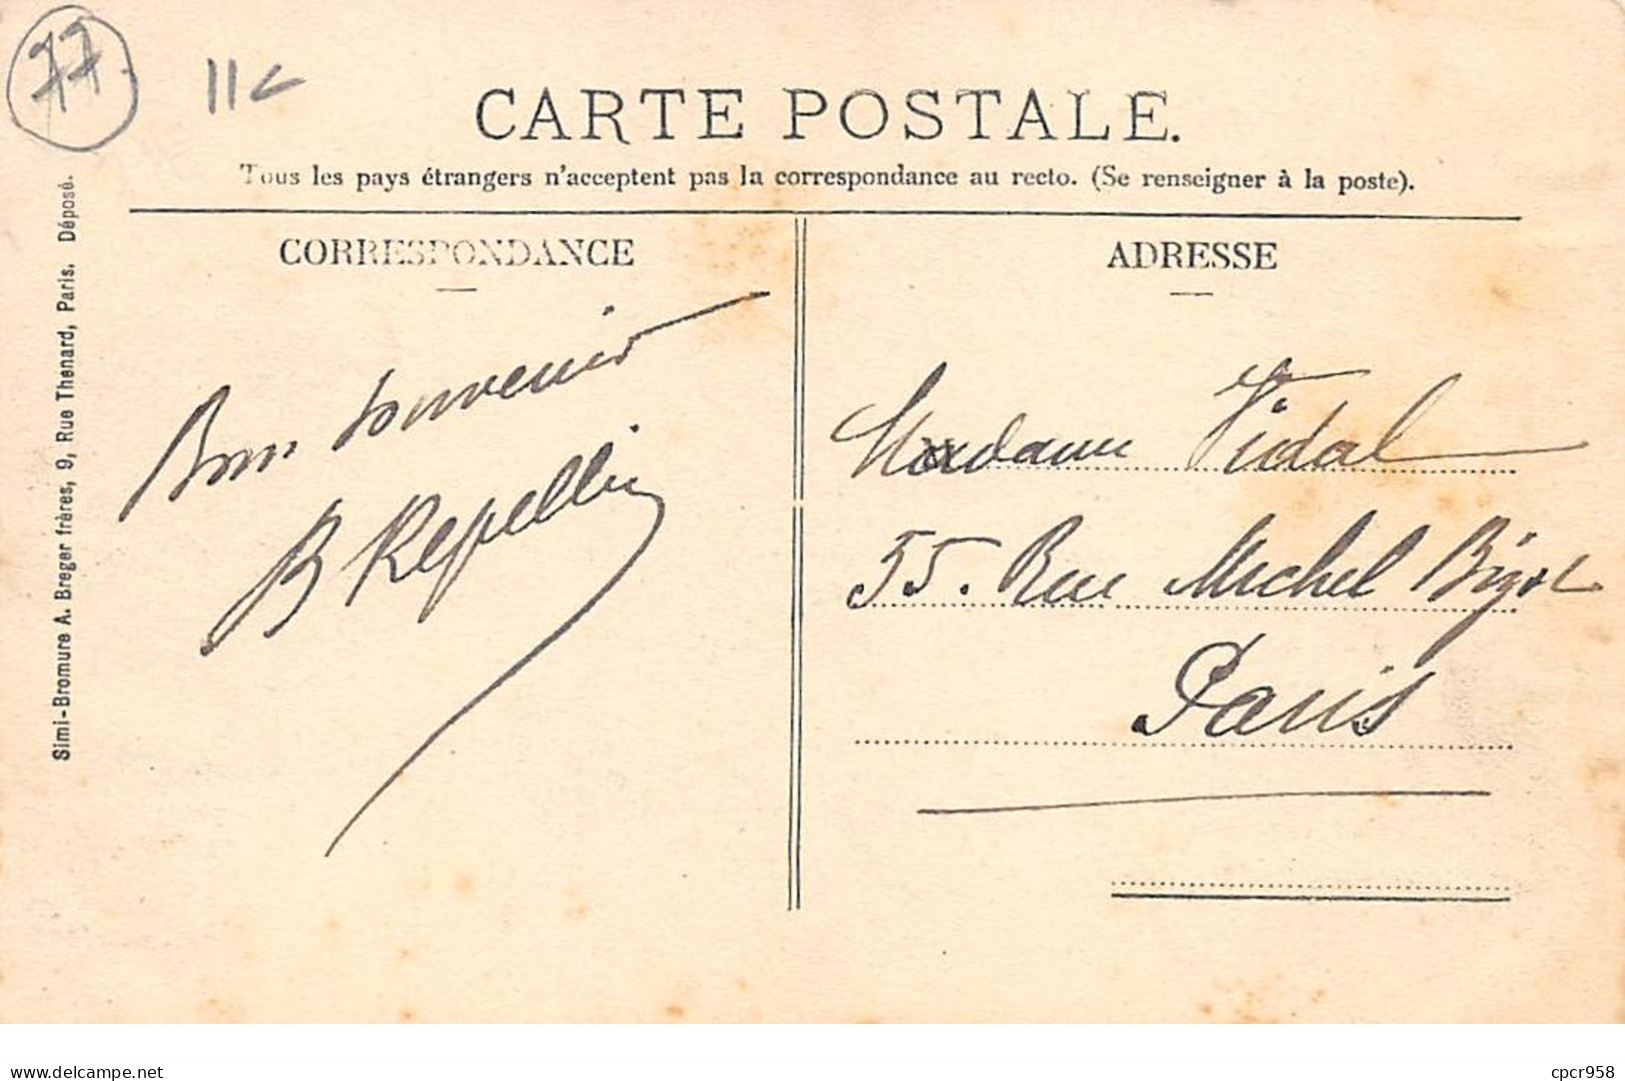 77
11
CARTE POSTALE.
Tous les pays étrangers n'acceptent pas la correspondance au recto. (Se renseigner à la poste).
CORRESPONDANCE
Bon souvenir
B Repellin
ADRESSE
Madame Vidal
55. Rue Michel Bizot
Paris
Simi-Bromure A. Breger frères, 9, Rue Thenard, Paris. Déposé.
cpcr958